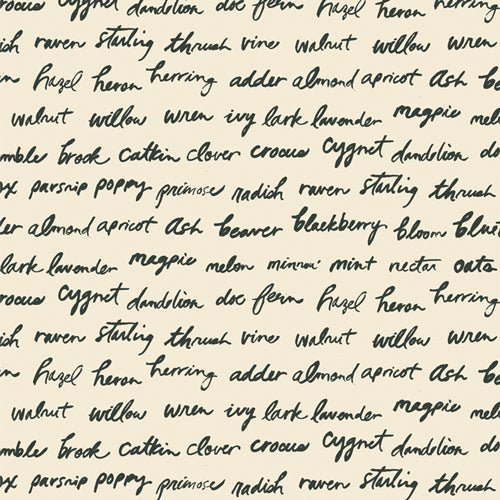 crocus cygnet dandelion doe fern hazel heron herring
radish raven starling thrush vine walnut willow wren
hazel heron herring adder almond apricot ash
walnut willow wren ivy lark lavender magpie
brook catkin clover crocus cygnet dandelion
parsnip poppy primrose radish raven starling thrush
almond apricot ash beaver blackberry bloom
lark lavender magpie melon minnow mint nectar oats
crocus cygnet dandelion doe fern hazel heron herring
raven starling thrush vine walnut willow wren
hazel heron herring adder almond apricot ash
walnut willow wren ivy lark lavender magpie
brook catkin clover crocus cygnet dandelion
parsnip poppy primrose radish raven starling thrush